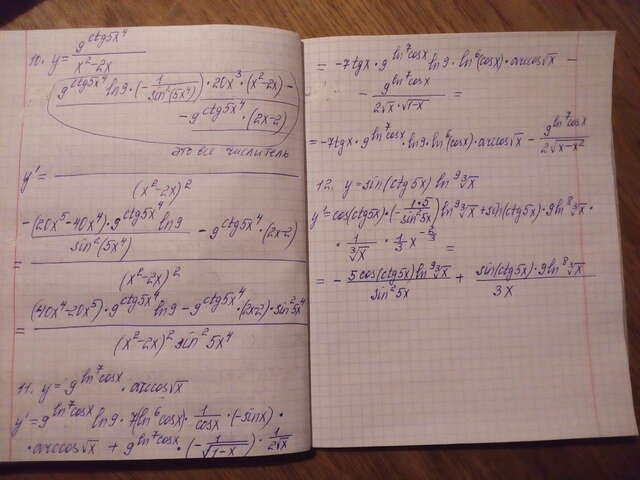 10. y = 9^(ctg5x⁴) / (x²-2x)
9^(ctg5x⁴) ln9 · (-1/sin²(5x⁴)) · 20x³ · (x²-2x) -
- 9^(ctg5x⁴) · (2x-2)
это все числитель
y' = ———
(x²-2x)²
= (-(20x⁵-40x⁴) · 9^(ctg5x⁴) ln9 / sin²(5x⁴) - 9^(ctg5x⁴) · (2x-2)) / (x²-2x)²
= ((40x⁴-20x⁵) · 9^(ctg5x⁴) ln9 - 9^(ctg5x⁴) · (2x-2) · sin²5x⁴) / ((x²-2x)² sin²5x⁴)
11. y = 9^(ln⁷cosx) · arccos√x
y' = 9^(ln⁷cosx) ln9 · 7(ln⁶cosx) · 1/cosx · (-sinx) ·
· arccos√x + 9^(ln⁷cosx) · (-1/√(1-x)) · 1/(2√x)
= -7tgx · 9^(ln⁷cosx) ln9 · ln⁶(cosx) · arccos√x -
- 9^(ln⁷cosx) / (2√x · √(1-x)) =
= -7tgx · 9^(ln⁷cosx) · ln9 · ln⁶(cosx) · arccos√x - 9^(ln⁷cosx) / (2√(x-x²))
12. y = sin(ctg5x) ln⁹ ∛x
y' = cos(ctg5x) · (-1·5/sin²5x) ln⁹ ∛x + sin(ctg5x) · 9ln⁸ ∛x ·
· 1/∛x · 1/3 x^(-2/3) =
= - 5cos(ctg5x) ln⁹ ∛x / sin²5x + sin(ctg5x) · 9ln⁸ ∛x / 3x